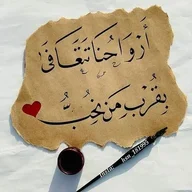 أَرْوَاحُنَا تَتَعَافَى
بِقُرْبِ مَنْ نُحِبُّ